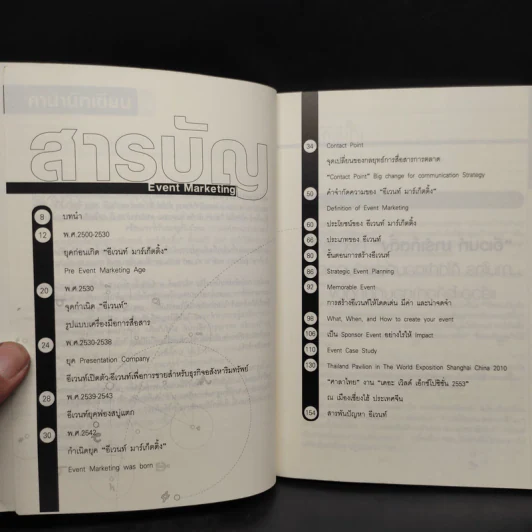 คำนำนักเขียน
สารบัญ
Event Marketing
8 บทนำ
12 พ.ศ.2500-2530
ยุคก่อนเกิด "อีเวนท์ มาร์เก็ตติ้ง"
Pre Event Marketing Age
20 พ.ศ.2530
จุดกำเนิด "อีเวนท์"
รูปแบบเครื่องมือการสื่อสาร
24 พ.ศ.2530-2538
ยุค Presentation Company
อีเวนท์เปิดตัว-อีเวนท์เพื่อการขายสำหรับธุรกิจอสังหาริมทรัพย์
28 พ.ศ.2539-2543
อีเวนท์ยุคฟองสบู่แตก
30 พ.ศ.2542
กำเนิดยุค "อีเวนท์ มาร์เก็ตติ้ง"
Event Marketing was born
34 Contact Point
จุดเปลี่ยนของกลยุทธ์การสื่อสารการตลาด
"Contact Point" Big change for communication Strategy
50 คำจำกัดความของ "อีเวนท์ มาร์เก็ตติ้ง"
Definition of Event Marketing
60 ประโยชน์ของ อีเวนท์ มาร์เก็ตติ้ง
66 ประเภทของ อีเวนท์
80 ขั้นตอนการสร้างอีเวนท์
86 Strategic Event Planning
92 Memorable Event
การสร้างอีเวนท์ให้โดดเด่น มีค่า และน่าจดจำ
98 What, When, and How to create your event
106 เป็น Sponsor Event อย่างไรให้ Impact
110 Event Case Study
130 Thailand Pavilion in The World Exposition Shanghai China 2010
"ศาลาไทย" งาน "เดอะ เวิลด์ เอ็กซ์โปซิชั่น 2553"
ณ เมืองเซี่ยงไฮ้ ประเทศจีน
154 สารพันปัญหา อีเวนท์